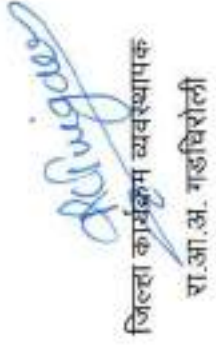 जिल्हा कार्यक्रम व्यवस्थापक
रा.आ.अ. गडचिरोली